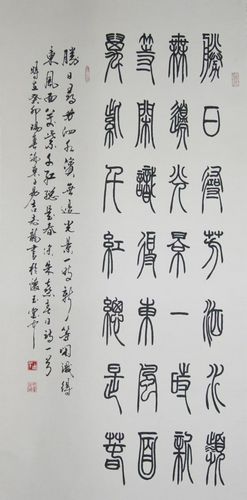 勝日尋芳泗水濱
無邊光景一時新
等閒識得東風面
萬紫千紅總是春
勝日尋芳泗水濱無邊光景一時新等閒識得
東風面萬紫千紅總是春宋朱熹春日詩一首
時在癸卯